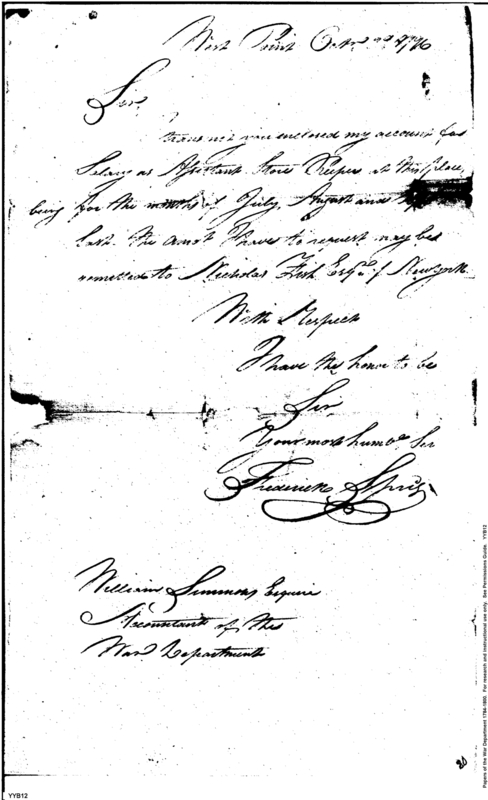 West Point Octr 1796
Sir,
I transmit you enclosed my account for
Salary as Assistant Store Keeper at this place,
being for the months of July, August and
last. The amot I have to request may be
remitted to Nicholas Fish Esqr of New york
With Respect
I have the honor to be
Sir
Your most humbe Ser
Frederick
William Simmons Esquire
Accountant of the
War Department
20
YYB12
Papers of the War Department 1784-1800. For research and instructional use only. See Permissions Guide. YYB12